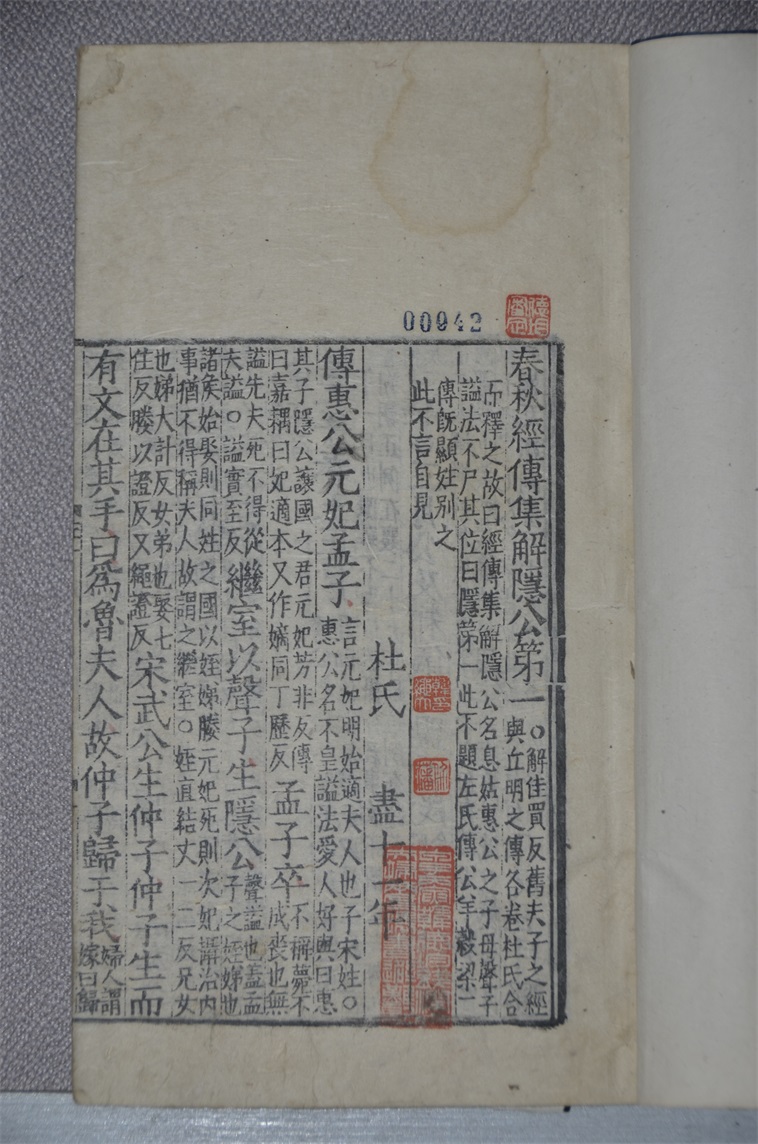 00942
春秋經傳集解隱公第一○解佳買反舊夫子之經與丘明之傳各卷杜氏合
而釋之故曰經傳集解隱公名息姑惠公之子母聲子謚法不尸其位曰隱第一此不題左氏傳公羊穀梁二
傳既顯姓別之此不言自見
杜氏 盡十一年
傳惠公元妃孟子言元妃明始適夫人也子宋姓○惠公名不皇謚法愛人好與曰惠
其子隱公讓國之君元妃芳非反傳曰嘉耦曰妃適本又作嫡同丁歷反孟子卒不稱薨不成喪也無
謚先夫死不得從夫謚○謚實至反繼室以聲子生隱公聲謚也蓋孟子之姪娣也
諸侯始娶則同姓之國以姪娣媵元妃死則次妃攝治內事猶不得稱夫人故謂之繼室○姪直結丈一二反兄女
也娣大計反女弟也娶七住反媵以證反又繩證反宋武公生仲子仲子生而
有文在其手曰爲魯夫人故仲子歸于我婦人謂嫁曰歸